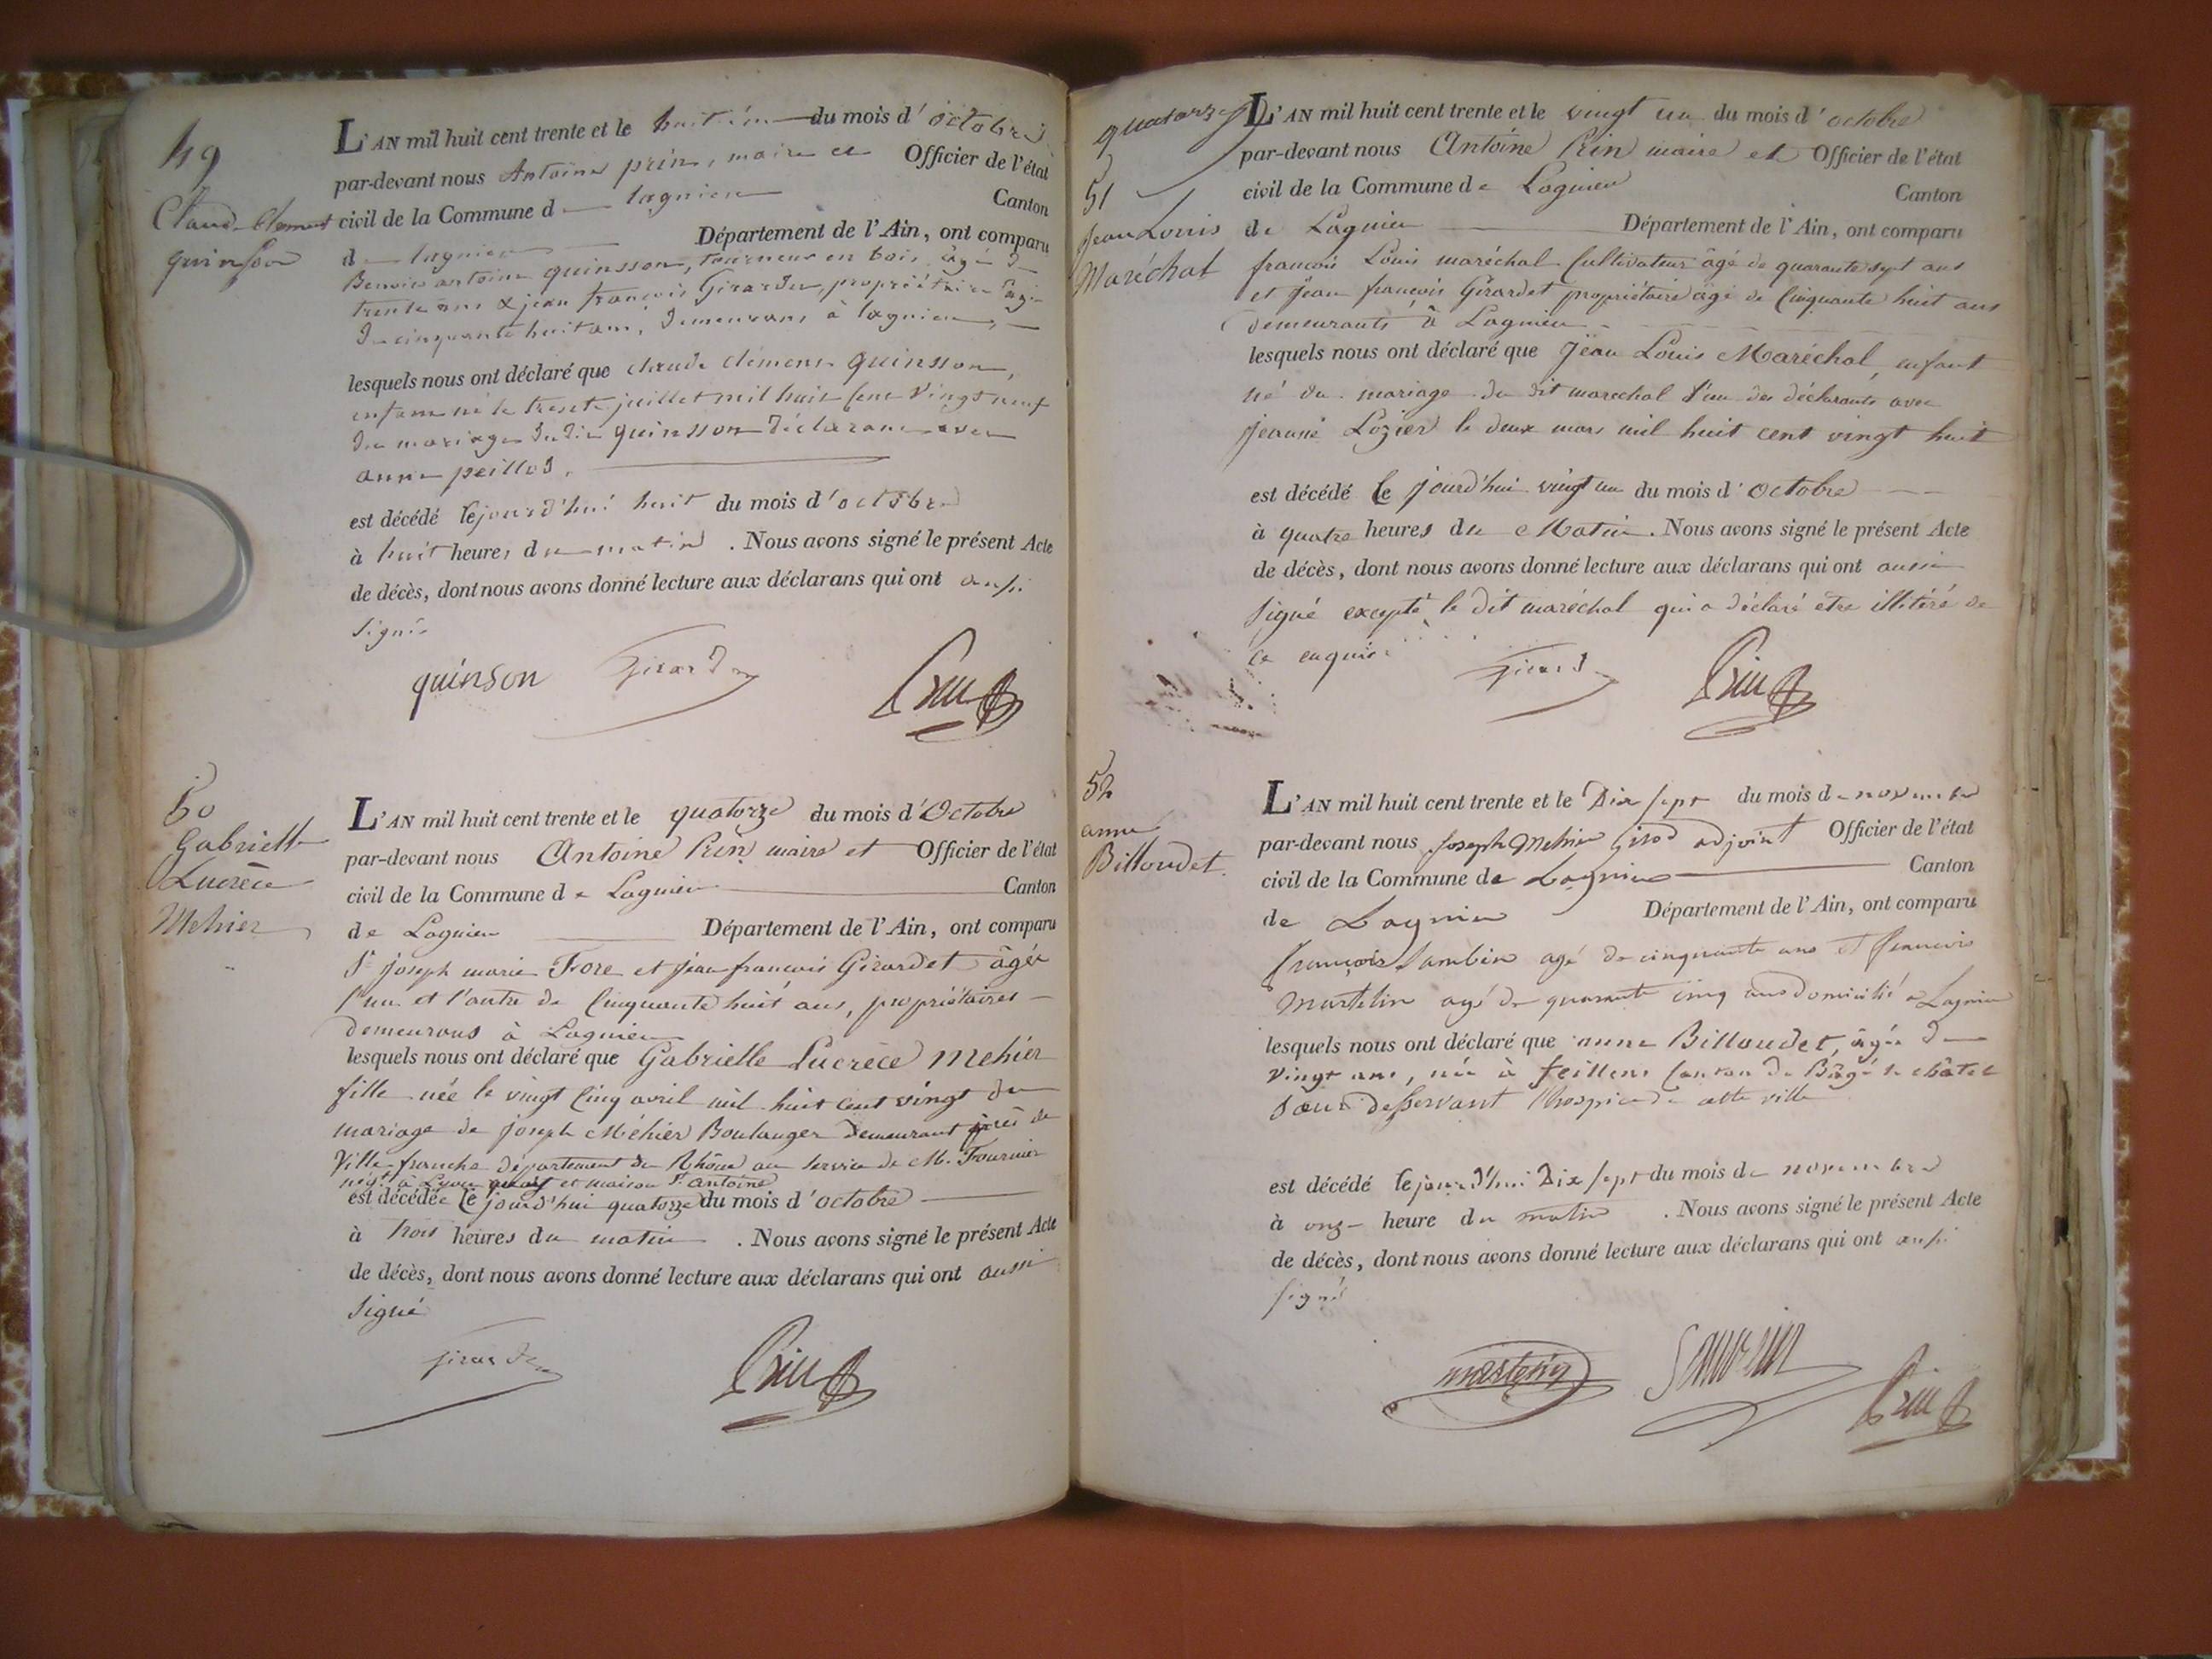 49
Claude Clément
quinson
L'AN mil huit cent trente et le huitième du mois d'octobre
par-devant nous Antoine prin, maire et Officier de l'état
civil de la Commune d lagnieu Canton
de lagnieu Département de l'Ain, ont comparu
Benoit antoine quinsson, tourneur en bois, âgé de
trente ans & jean françois Girardet, propriétaire âgé
de cinquante huit ans, demeurans à lagnieu,
lesquels nous ont déclaré que claude clément quinsson,
enfant né le trente juillet mil huit cent vingt neuf
du mariage dudit quinsson déclarant avec
anne peillod.
est décédé le jourd'hui huit du mois d'octobre
à huit heures du matin . Nous avons signé le présent Acte
de décès, dont nous avons donné lecture aux déclarans qui ont aussi
signé
quinson Girardet Prin
50
Gabrielle
Lucrèce
Mehier
L'AN mil huit cent trente et le quatorze du mois d'Octobre
par-devant nous Antoine Prin maire et Officier de l'état
civil de la Commune de Lagnieu Canton
de Lagnieu Département de l'Ain, ont comparu
Sr joseph marie Fore et jean françois Girardet âgés
l'un et l'autre de Cinquante huit ans, propriétaires
demeurans à Lagnieu
lesquels nous ont déclaré que Gabrielle Lucrèce Mehier
fille née le vingt cinq avril mil huit cent vingt du
mariage de joseph Méhier Boulanger demeurant près de
Ville-franche département du Rhône au service de M. Fournier
négt. à Lyon quay et maison St. antoine
est décédée le jourd'hui quatorze du mois d'octobre
à trois heures du matin . Nous avons signé le présent Acte
de décès, dont nous avons donné lecture aux déclarans qui ont aussi
signé
Girardet Prin
quatorze
51
Jean Louis
Maréchal
L'AN mil huit cent trente et le vingt un du mois d'octobre
par-devant nous Antoine Prin maire et Officier de l'état
civil de la Commune de Lagnieu Canton
de Lagnieu Département de l'Ain, ont comparu
françois Louis maréchal Cultivateur âgé de quarante sept ans
et Jean françois Girardet propriétaire âgé de Cinquante huit ans
demeurants à Lagnieu
lesquels nous ont déclaré que Jean Louis Maréchal, enfant
né du mariage du dit marechal l'un des déclarants avec
jeanne Lozier le deux mars mil huit cent vingt huit
est décédé le jourd'hui vingt un du mois d'Octobre
à quatre heures du Matin. Nous avons signé le présent Acte
de décès, dont nous avons donné lecture aux déclarans qui ont aussi
signé excepté le dit maréchal qui a déclaré etre illitéré de
ce enquis.
Girardet Prin
52
anne
Billoudet.
L'AN mil huit cent trente et le Dix sept du mois de novembre
par-devant nous Joseph Mehier Girod adjoint Officier de l'état
civil de la Commune de Lagnieu Canton
de Lagnieu Département de l'Ain, ont comparu
françois agé de cinquante ans Et francois
Martelin agé de quarante cinq ans domicilié a Lagnieu
lesquels nous ont déclaré que anne Billoudet, âgée de
vingt ans, née à feillens Canton de Bâgé le châtel
Sœur desservant l'hospice de cette ville
est décédé le jourd'hui Dix sept du mois de novembre
à onze heure du matin . Nous avons signé le présent Acte
de décès, dont nous avons donné lecture aux déclarans qui ont aussi
signé
Prin